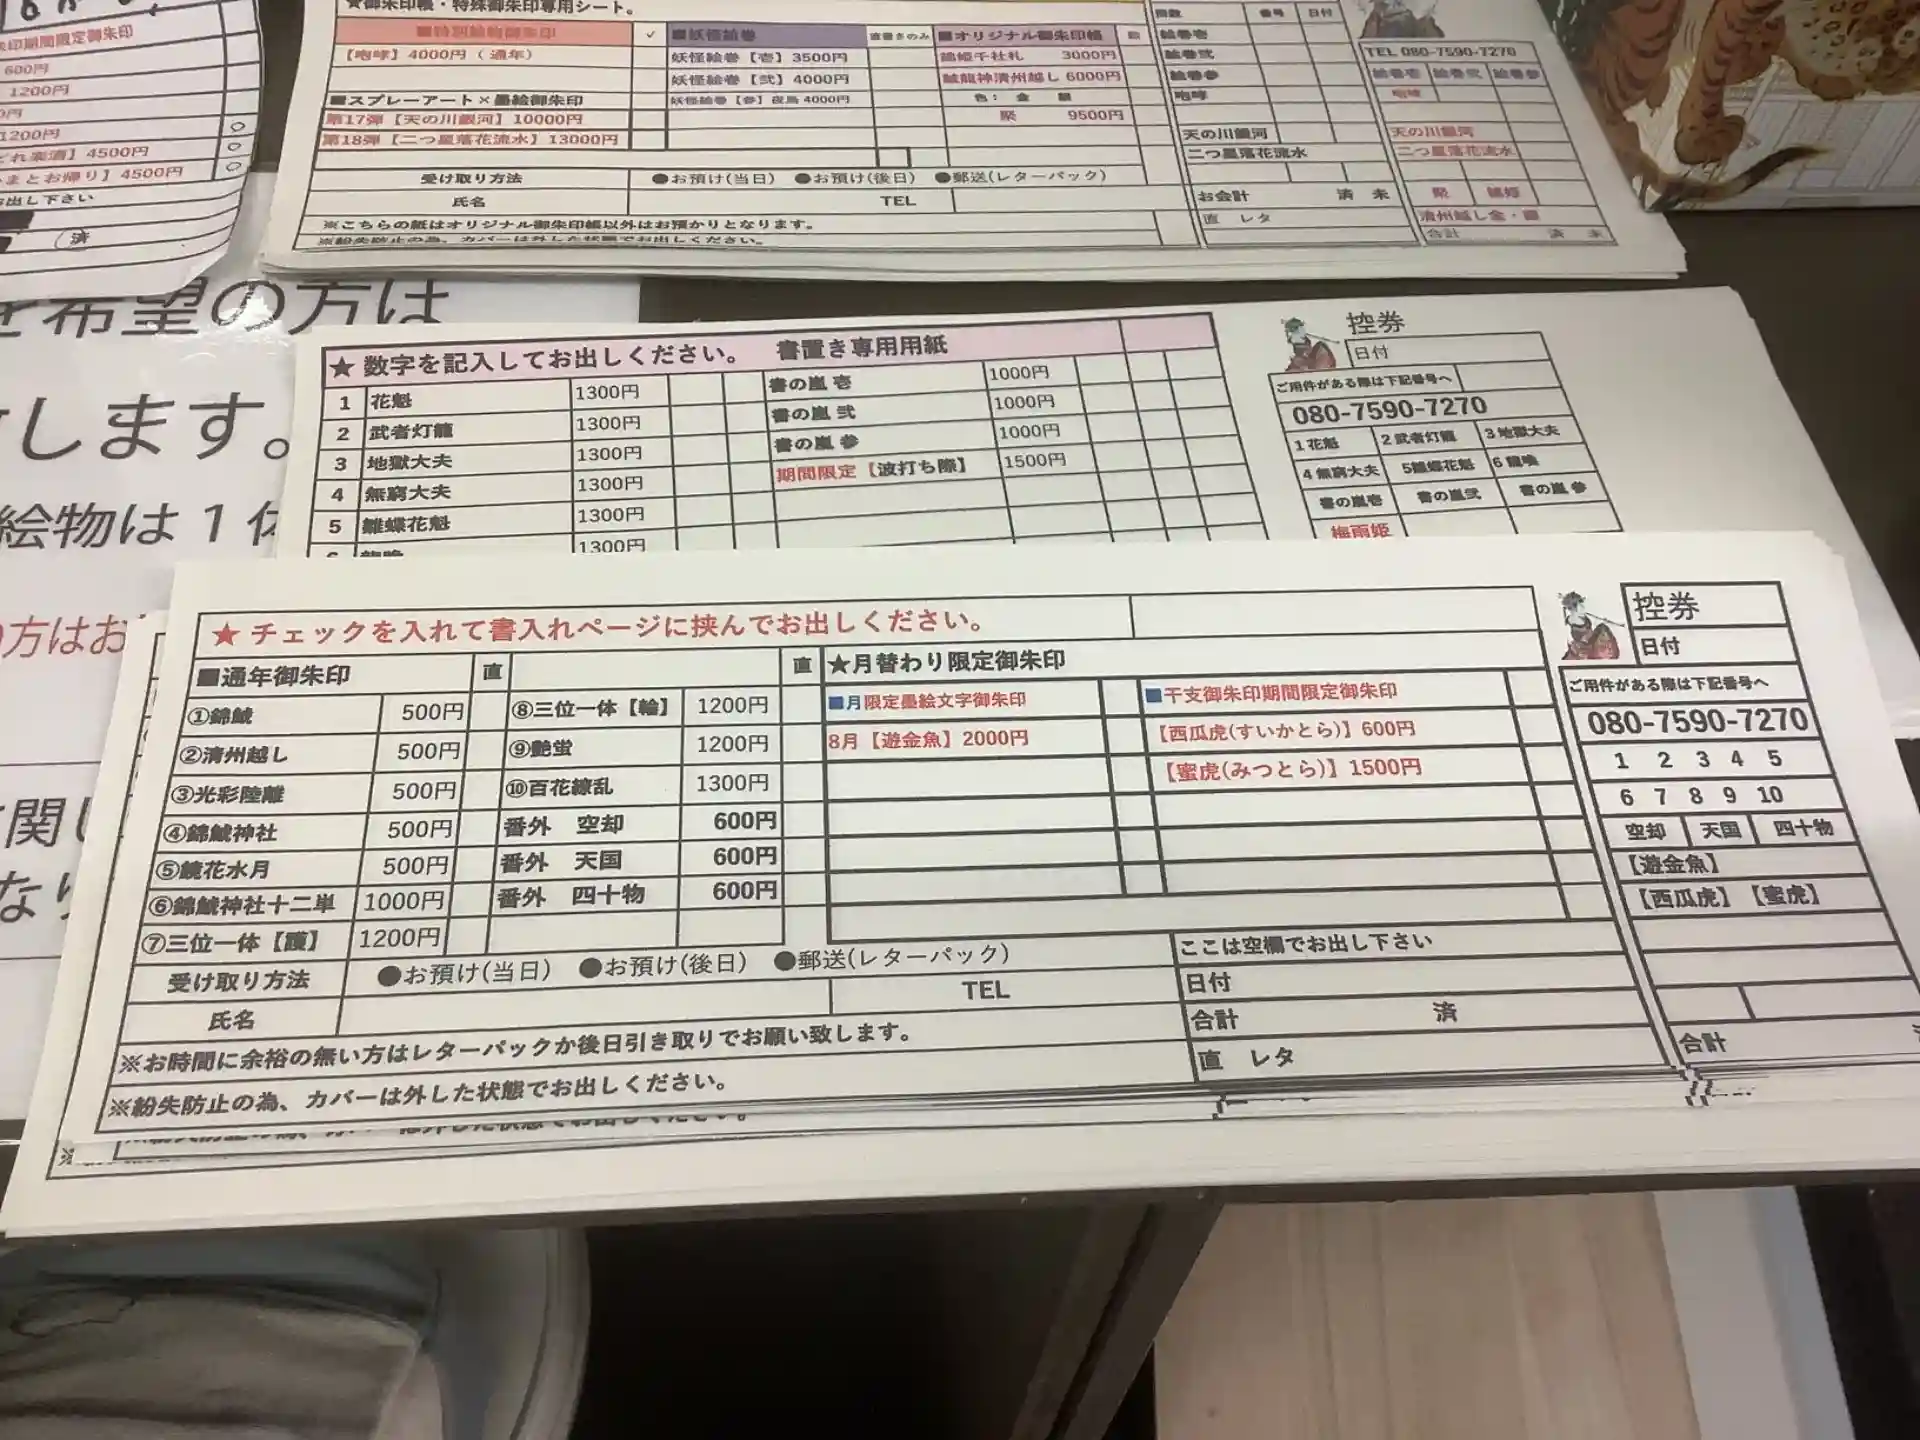 朱印期間限定御朱印
600円
1200円
1200円
どれ素酒】4500円
まとお帰り】4500円
お出し下さい
済
★御朱印帳・特殊御朱印専用シート。
【咆哮】4000円(通年)
■スプレーアート×墨絵御朱印
第17弾【天の川銀河】10000円
第18弾【二つ星落花流水】13000円
■妖怪絵巻 直書きのみ
妖怪絵巻【壱】3500円
妖怪絵巻【弐】4000円
妖怪絵巻【参】夜鳥 4000円
■オリジナル御朱印帳
錦姫千社札 3000円
鯱龍神清州越し 6000円
色: 金 銀
聚 9500円
受け取り方法 ●お預け(当日) ●お預け(後日) ●郵送(レターパック)
氏名 TEL
※こちらの紙はオリジナル御朱印帳以外はお預かりとなります。
※紛失防止の為、カバーは外した状態でお出しください。
番号 日付
絵巻壱
絵巻弐
絵巻参
咆哮
天の川銀河
二つ星落花流水
お会計 済 未
直 レタ
TEL 080-7590-7270
絵巻壱 絵巻弐 絵巻参
咆哮
天の川銀河
二つ星落花流水
聚 錦姫
清州越し金・銀
合計 済 未
を希望の方は
致します。
絵物は1体
の方はお
に関し
なり
★ 数字を記入してお出しください。 書置き専用用紙
1 花魁 1300円
2 武者灯籠 1300円
3 地獄大夫 1300円
4 無窮大夫 1300円
5 雛蝶花魁 1300円
6 1300円
書の嵐 壱 1000円
書の嵐 弐 1000円
書の嵐 参 1000円
期間限定【波打ち際】 1500円
控券
日付
ご用件がある際は下記番号へ
080-7590-7270
1 花魁 2 武者灯籠 3 地獄大夫
4 無窮大夫 5雛蝶花魁 6 龍喚
書の嵐壱 書の嵐弐 書の嵐 参
梅雨姫
★ チェックを入れて書入れページに挟んでお出しください。
■通年御朱印 直
①錦鯱 500円
②清州越し 500円
③光彩陸離 500円
④錦鯱神社 500円
⑤鏡花水月 500円
⑥錦鯱神社十二単 1000円
⑦三位一体【護】 1200円
直
⑧三位一体【輪】 1200円
⑨艶蛍 1200円
⑩百花繚乱 1300円
番外 空却 600円
番外 天国 600円
番外 四十物 600円
★月替わり限定御朱印
■月限定墨絵文字御朱印
8月【遊金魚】2000円
■干支御朱印期間限定御朱印
【西瓜虎(すいかとら)】600円
【蜜虎(みつとら)】1500円
受け取り方法 ●お預け(当日) ●お預け(後日) ●郵送(レターパック)
氏名 TEL
※お時間に余裕の無い方はレターパックか後日引き取りでお願い致します。
※紛失防止の為、カバーは外した状態でお出しください。
ここは空欄でお出し下さい
日付
合計 済
直 レタ
控券
日付
ご用件がある際は下記番号へ
080-7590-7270
1 2 3 4 5
6 7 8 9 10
空却 天国 四十物
【遊金魚】
【西瓜虎】【蜜虎】
合計